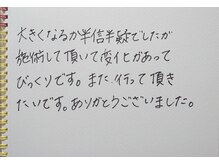 大きくなるか半信半疑でしたが
施術して頂いて変化があって
びっくりです。また行って頂き
たいです。ありがとうございました。